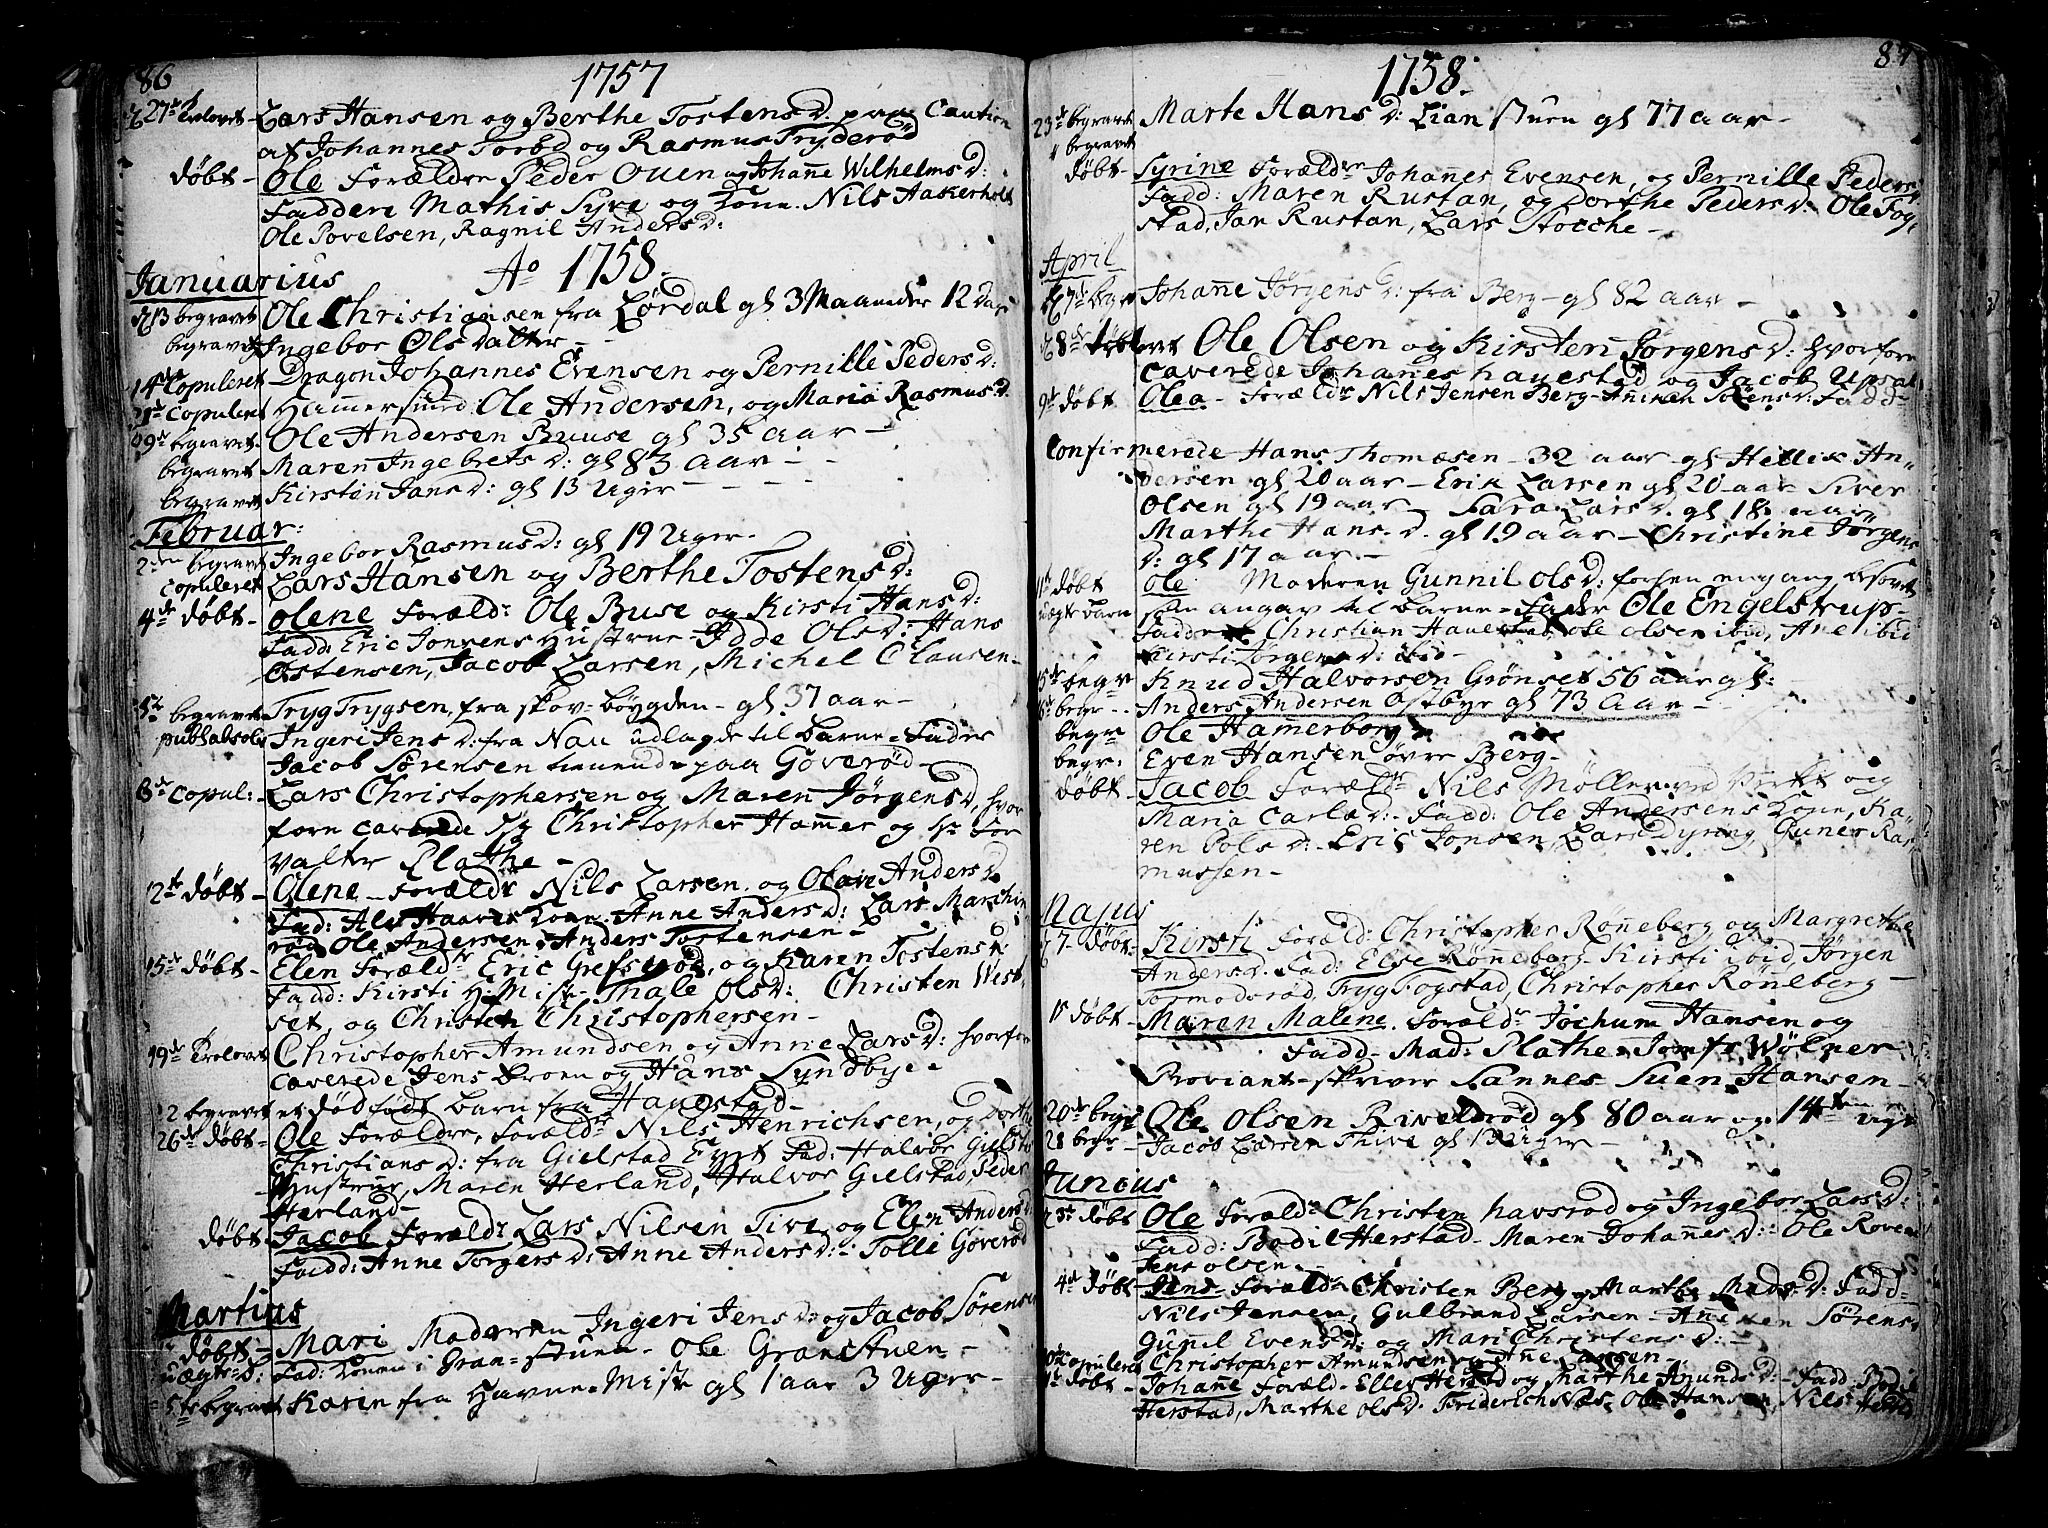 86
1757
27de trolovet Lars Hansen og Berthe Tostens D. paa Caution
af Johannes Torbd og Rasmus Tryderød
døbt - Ole Forældre Peder Ouen og Johanne Wilhelms D:
Faddere Mathis Syre og kone. Nils Aakerholt
Ole Povelsen, Ragnil Anders D:
Januarius Ao 1758.
13 begravet Ole Christiansen fra Lørdal gl 3 Maaneder 12 Dar
begravet Ingebor Ols Datter - -
14de Copuleret Dragon Johannes Evensen og Pernille Peders D:
Copuleret Hammersmed Ole Andersen, og Maria Rasmus D.
begravet Ole Andersen Buuse gl 35 aar -
begravet Maren Ingebrets D: gl 83 aar - - -
begravet Kirsten Jans D: gl 13 Uger - - - -
Februar:
2den begravet Ingebor Rasmus D: gl 19 Uger -
copuleret Lars Hansen og Berthe Tostens D:
4de døbt - Olene Foræld: Ole Buse og Kirsti Hans D:
Fadd: Eric Jonsens Hustrue - Idde Ols D: Hans
Ostensen, Jacob Larsen, Michel Clausen -
begravet Tryg Trygsen, fra skov-bøygden - gl 37 aar -
publ: absolv Ingeri Jens D: fra Nau udlagde til barne-Fader
Jacob Sørensen paa Goverød -
8de copul: - Lars Christophersen og Maren Jørgens D, hvor
forn caverede Christopher Hammer og Hr For
valter Plathe -
12te døbt - Olene - foræld: Nils Larsen og Anders D
Fad: kone. Anne Anders D: Lars
Ole Andersen, Anders Tostensen -
15de døbt - Elen Foræld: Eric Grefsrød, og Karen Tostens D:
Fadd: Kirsti Thale Ols D: Christen West
set, og Christen Christophersen -
19de trolovet Christopher Amundsen og Anne Lars D: hvorfor
caverede Jens broen og Hans Syndbye -
begravet et dødfødt barn fra Hauestad -
26de døbt - Ole Forældre, foræld: Nils Henrichsen, og Dorthe
Christians D: fra Gielstad Fad: Halvor Gielstad
Hustrue, Maren Herland, Halvor Gielstad, Peder
Herland -
døbt - Jacob Foræld: Lars Nilsen Tive og Elen Anders D:
Fadd: Anne Torgers D: Anne Anders D: - Tolli Goverød
Martius
døbt - Mari Moderen Ingeri Jens D: og Jacob Sørensen
uægte D: Fad: konen i Gran-stuen - Ole Granstuen -
5te begravet Karen fra Havne-Mist gl 1 aar 3 Uger -
87
1758.
23de begravet Marte Hans D: Lian stuen gl 77 aar -
begravet
døbt - Syrine Foræld: Johannes Evensen, og Pernille Peders D:
Fadd: Maren Rustan, og Dorthe Peders D: Ole Fog
stad, Jan Rustan, Lars Stocche -
April
7de begr Johanne Jørgens D: fra Berg - gl 82 aar -
8de trolovet Ole Olsen og Kirsten Jørgens D: hvorforn
caverede Johanes hauestad og Jacob Upsal
9de døbt Olea - Foræld: Nils Jensen Berg - Fadd -
Confirmerede Hans Thomæsen - 32 aar - gl Hellik An-
dersen gl 20 aar - Erik Larsen gl 20 aar - Siver
Olsen gl 19 aar - Sara Lars D. gl 18 aar
Marthe Hans D. gl 19 aar - Christine Jørgens
D: gl 17 aar -
døbt Ole Moderen Gunnil Ols D: forhen engang besovet
uægte barn angav til barne-Fader Ole Engelstrup -
Faddere Christian Hauestad, ole olsen ibid, Ane ibid
Kirsti Jørgens D: ibid -
15de begr Knud Halvorsen Grønset 56 aar gl:
begr - Anders Andersen Ostbye gl 73 aar -
begr Ole Hamerborg
begr: Even Hansen øvre Berg -
døbt - Jacob Foræld: Nils Møller ved og
Maria Carls D: - Fadd: Ole Andersens kone, Ka-
ren Pols D: - Eric Jonsen, Lars Dyring, Guner Ras
mussen -
Majus
7 døbt - Kirsti Foræld: Christopher Rønneberg og Margrethe
Anders D. Fad: Else Rønneberg - Kirsti ibid, Jørgen
Tormodsrød, Tryg Fogstad, Christopher Røneberg
døbt - Maren Malene. Foræld: Jochum Hansen og
Fadd - Mad: Plathe - Jomfr Wølner
Proviant-skriver Sannes Suen Hansen -
20de begr Ole Olsen Riveldrød gl 80 aar og 14ten uger
28 begr - Jacob Larsen Thive gl 13 Uger -
Junius
3de døbt Ole Foræld: Christen havsrød og Ingebor Lars D:
Fadd: Bodil Herstad - Maren Johannes D: - Ole Roven
Jens olsen -
4de døbt Jens - Foræld: Christen Berg og Marthe Mads D: Fadd -
Nils Jensen, Gulbrand Larsen - Sørens D
Gunnil Evens D: og Mari Christens D: -
Copuleret Christopher Amundsen og Anne Larsen -
døbt - Johanne Foræld - Eller Herstad og Marthe Amunds D: - Fadd Bodil
Herstad, Marthe ols D: Friderich Næs - Ole Hansen, Nils